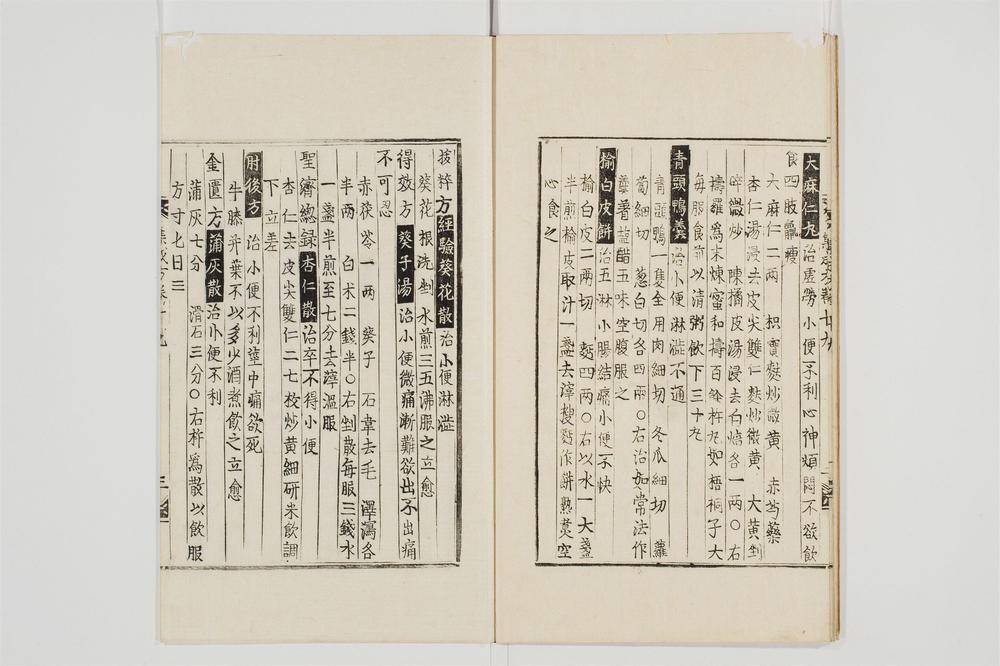 大麻仁丸治虛勞小便不利心神煩悶不欲飲
食四肢羸瘦
大麻仁二兩 枳實麩炒微黃 赤芍藥
杏仁湯浸去皮尖雙仁麩炒微黃 大黃剉
碎微炒 陳橘皮湯浸去白焙各一兩〇右
擣羅爲末煉蜜和擣百餘杵丸如梧桐子大
每服食前以清粥飲下三十丸
青頭鴨羹治小便淋澁不通
青頭鴨一隻全用肉細切 冬瓜細切 蘿
蔔細切 葱白切各四兩〇右治如常法作
羹着鹽醋五味空腹服之
榆白皮餅治五淋小腸結痛小便不快
榆白皮二兩切 麪四兩〇右以水一大盞
半煎榆皮取汁一盞去滓溲麪作餠熟羹空
心食之
拔粹方經驗葵花散治小便淋澁
葵花根洗剉水煎三五沸服之立愈
得效方葵子湯治小便微痛漸難欲出不出痛
不可忍
赤茯苓一兩 葵子 石韋去毛 澤瀉各
半兩 白朮二錢半〇右剉散每服三錢水
一盞半煎至七分去滓溫服
聖濟總録杏仁散治卒不得小便
杏仁去皮尖雙仁二七枚炒黃細研米飲調
下立差
肘後方治小便不利莖中痛欲死
牛膝幷葉不以多少酒煮飮之立愈
金匱方蒲灰散治小便不利
蒲灰七分 滑石三分〇右杵爲散以飮服
方寸匕日三